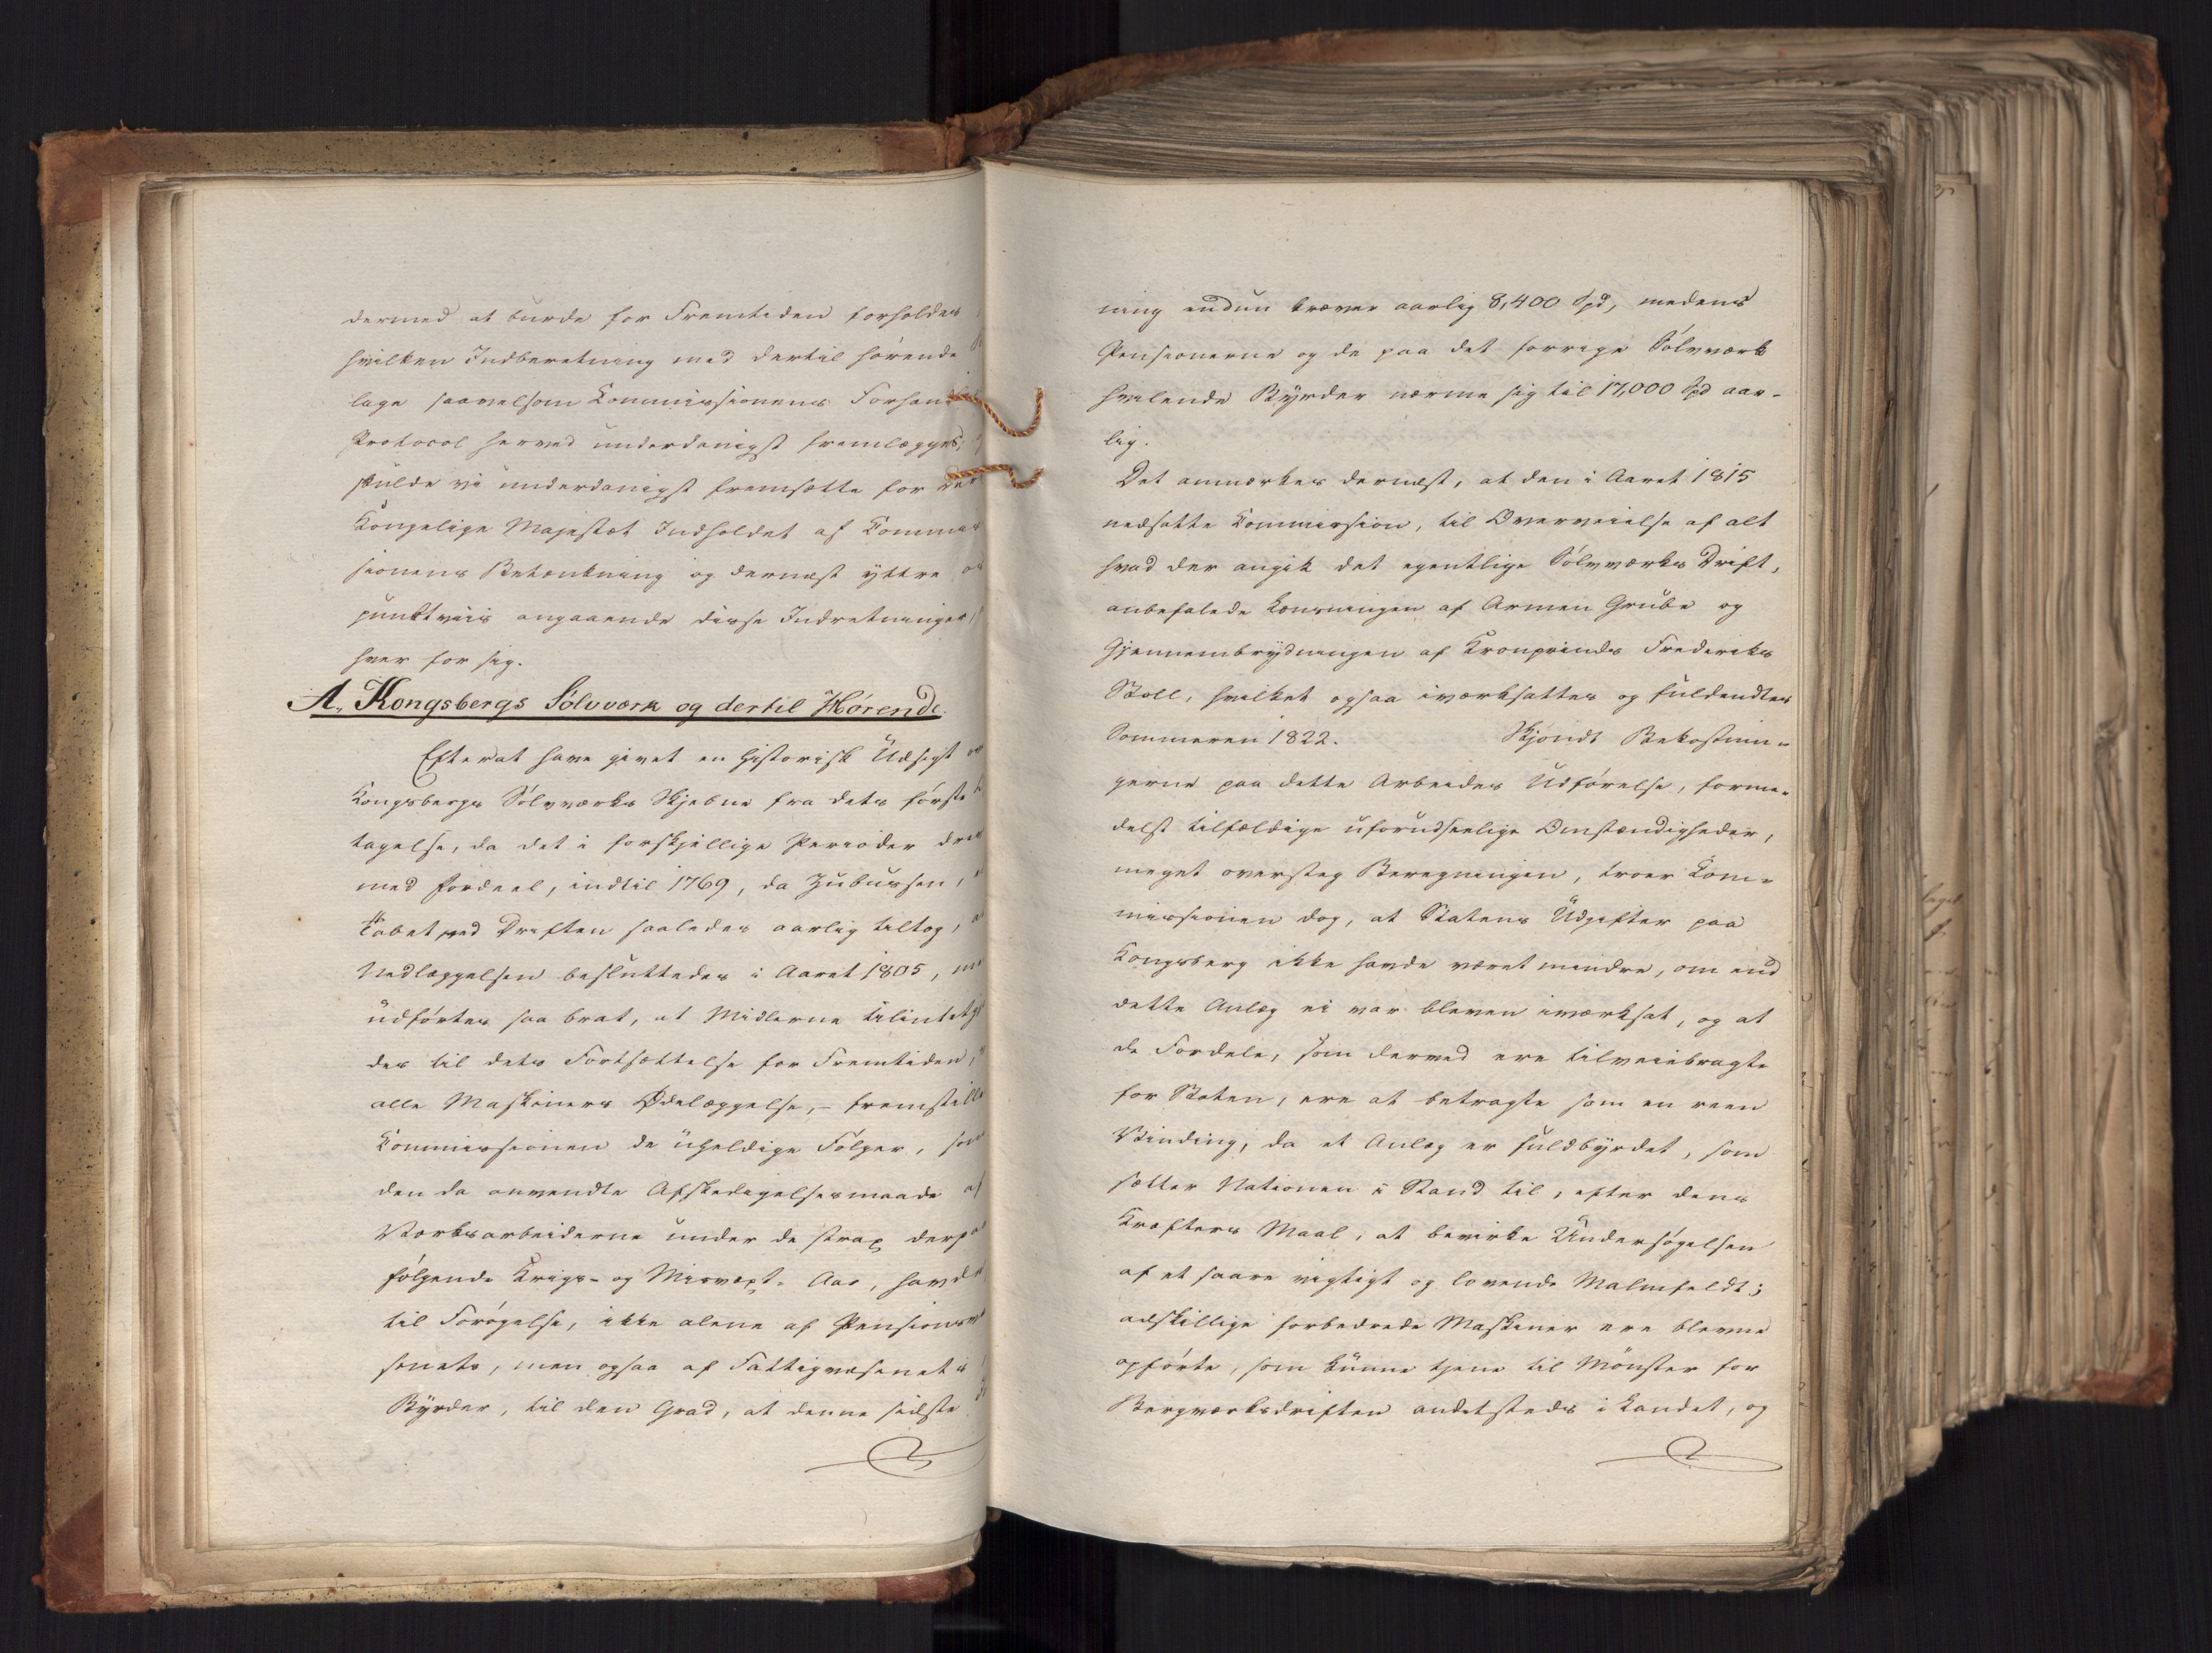 dermed at burde for Fremtiden forholdes
hvilken Indberetning med dertil hørende
lage saavelsom Commissionens Forhan
Protocol herved underdanigst fremlægges,
skulde vi underdanigst fremsætte for
Kongelige Majestæt Indholdet af Commis
sionens Betænkning og dernæst yttre os
punktviis angaaende disse Indretninger,
hver for sig.
A., Kongsbergs Sölvværk og dertil Hörende.
Efterat have givet en historisk Udsigt
Kongsbergs Sölvværks Skjebne fra dets förste
tagelse, da det i forskjellige Perioder dre
med Fordeel, indtil 1769, da Zubussen,
Tabet ved Driften saaledes aarlig tiltog,
Nedlæggelsen besluttedes i Aaret 1805,
udförtes saa brat, at Midlerne tilintetgj
des til dets Fortsættelse for Fremtiden,
alle Maskiners Ödelæggelse, – fremstille
Commissionen de uheldige Fölger, som
den da anvendte Afskedigelsesmaade af
Værksarbeiderne under de strax derpa
fölgende Krigs- og Misvæxt-Aar, havde
til Forögelse, ikke alene af Pensions
senets, men ogsaa af Fattigvæsenets
Byrder, til den Grad, at denne sidste
ning endnu kræver aarlig 8,400 Spd, medens
Pensionerne og de paa det forrige Sölvværk
hvilende Byrder nærme sig til 17,000 Spd aar-
lig.
Det anmærkes dernæst, at den i Aaret 1815
nedsatte Commission, til Overveielse af alt
hvad der angik det egentlige Sölvværks Drift,
anbefalede Lænsningen af Armen Grube og
Gjennembrydningen af Kronprinds Frederiks
Stoll, hvilket ogsaa iværksattes og fuldendtes
Sommeren 1822. Skjöndt Bekostnin-
gerne paa dette Arbeides Udförelse, forme-
delst tilfældige uforudseelige Omstændigheder,
meget oversteg Beregningen, troer Com-
missionen dog, at Statens Udgifter paa
Kongsberg ikke havde været mindre, om end
dette Anlæg ei var bleven iværksat, og at
de Fordele, som derved ere tilveiebragte
for Staten, ere at betragte som en reen
Vinding, da et Anlæg er fuldbyrdet, som
sætter Nationen i Stand til, efter dens
Kræfters Maal, at bevirke Undersögelsen
af et saare vigtigt og lovende Malmfeldt;
adskillige forbedrede Maskiner ere blevne
opförte, som kunne tjene til Mönster for
Bergværksdriften andetsteds i Landet, og